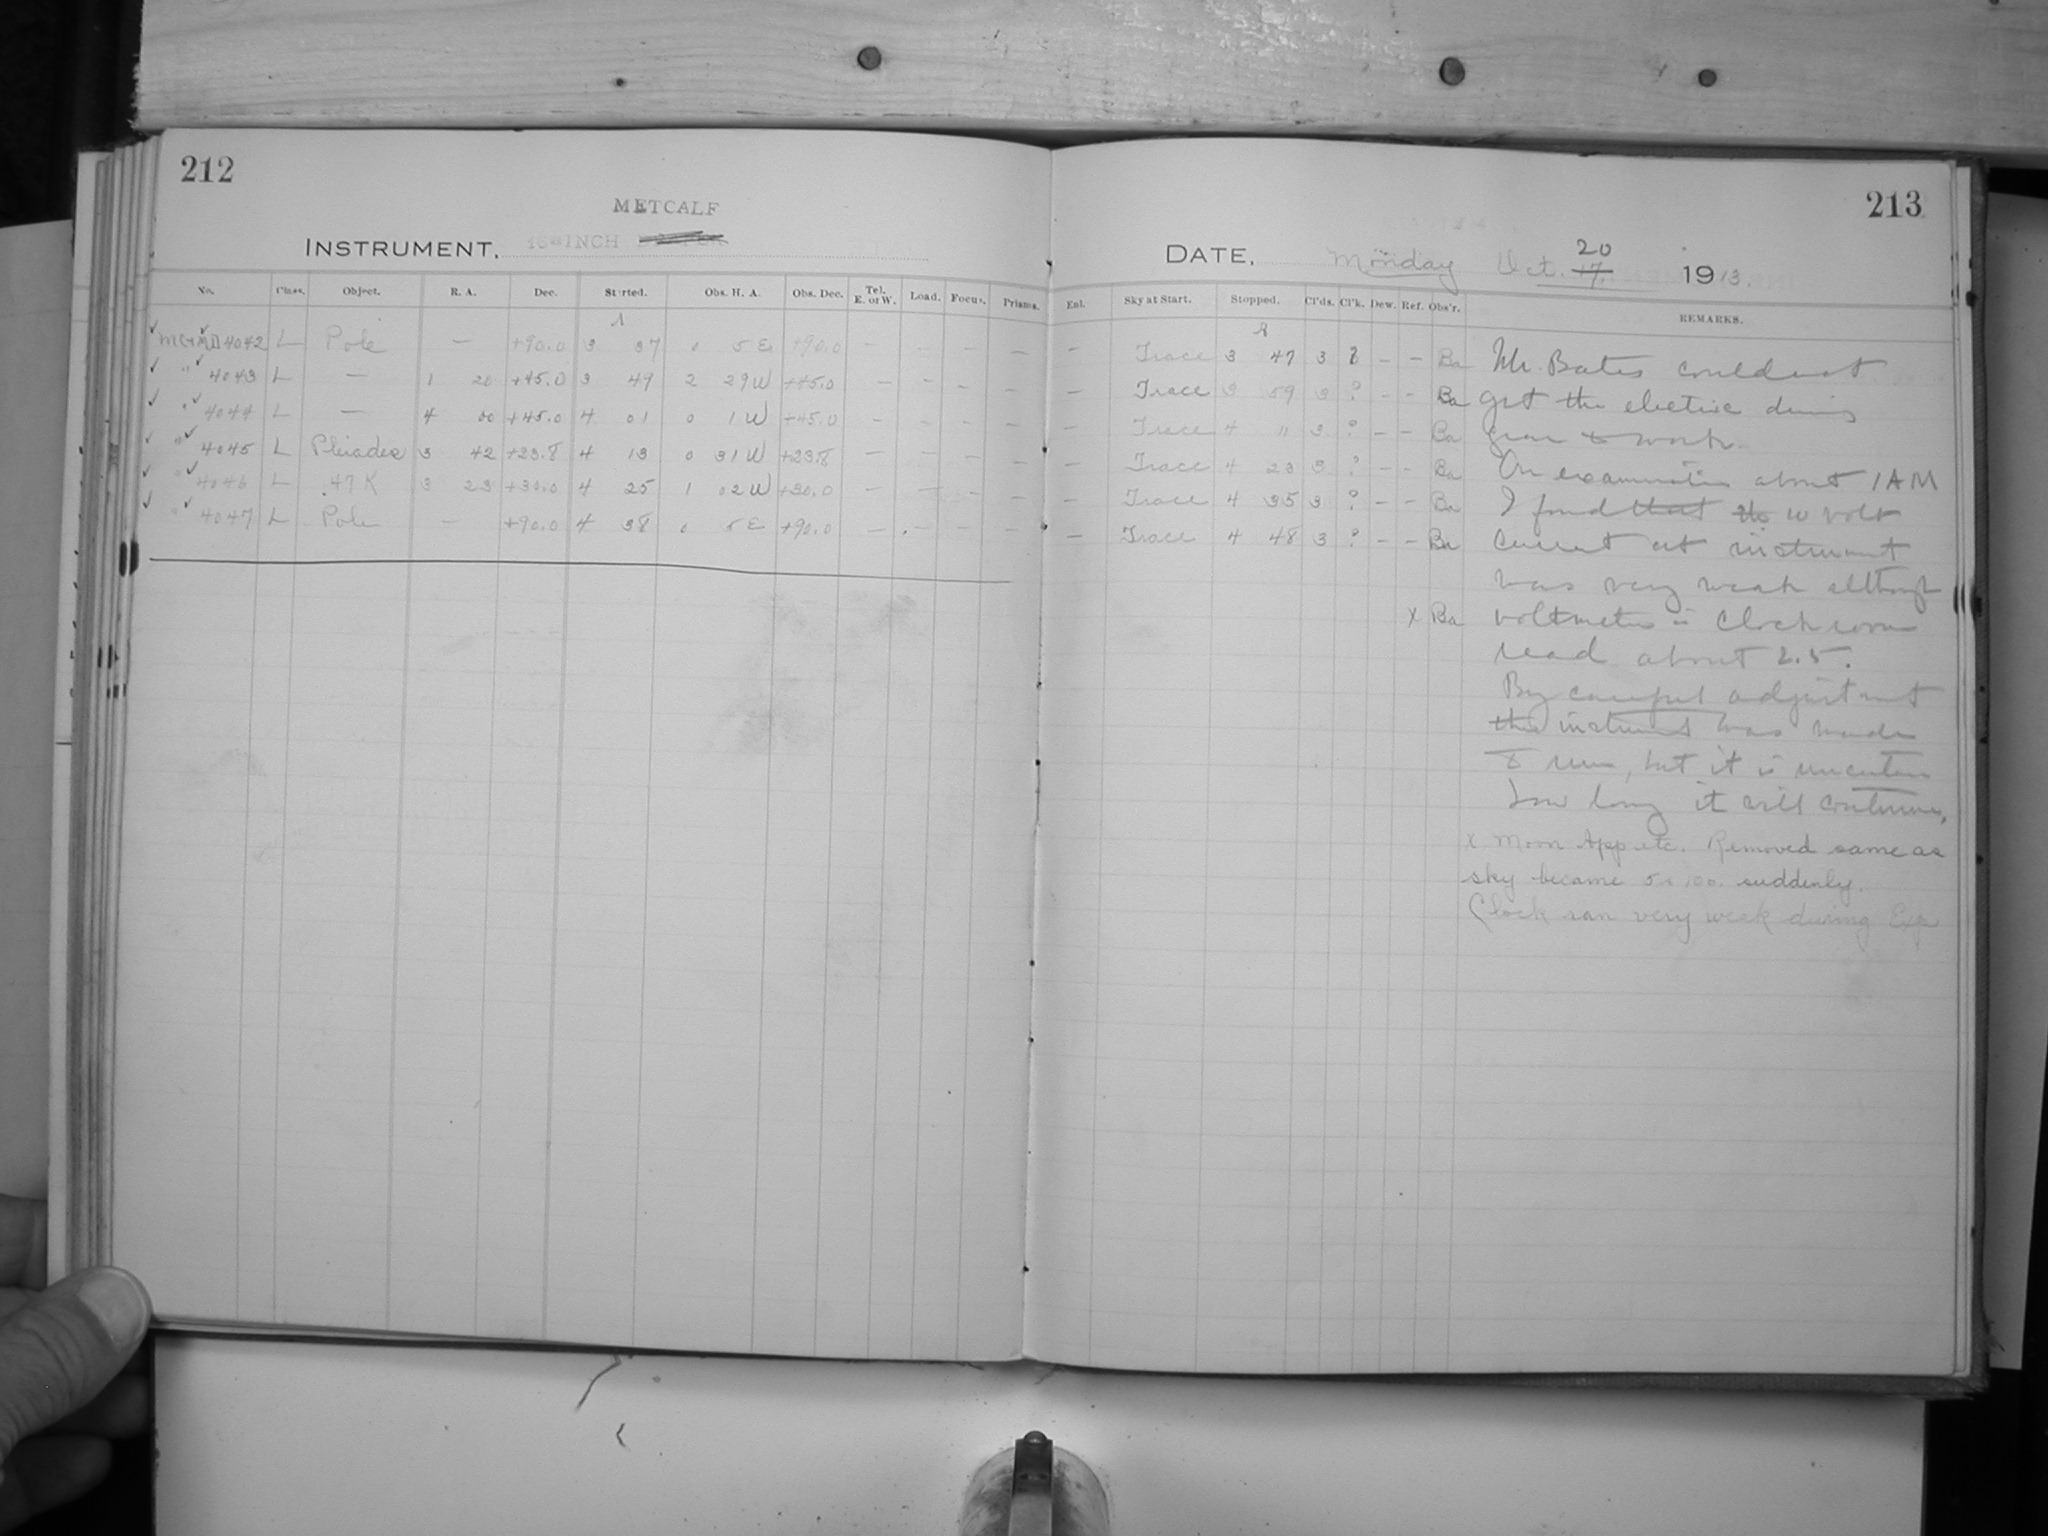 212
METCALF
INSTRUMENT. 16 INCH
No. Class. Object. R. A. Dec. Started. Obs. H. A. Obs. Dec. Tel. E. or W. Load. Focus. Prisms.
A
MC+MD 4042 L Pole — +90.0 3 37 0 5 E +90.0 — — — —
" 4043 L — 1 20 +45.0 3 49 2 29 W +45.0 — — — —
" 4044 L — 4 00 +45.0 4 01 0 1 W +45.0 — — — —
" 4045 L Pleiades 3 42 +23.8 4 13 0 31 W +23.8 — — — —
" 4046 L 47 K 3 23 +30.0 4 25 1 02 W +30.0 — — — —
" 4047 L Pole — +90.0 4 38 0 5 E +90.0 — — — —
213
DATE. Monday Oct. 17. 20 1913.
Enl. Sky at Start. Stopped. Cl'ds. Cl'k. Dew. Ref. Obs'r. REMARKS.
A
— Trace 3 47 3 ? – – Ba Mr. Bates could not
— Trace 3 59 3 ? – – Ba get the electric driving
— Trace 4 11 3 ? – – Ba gear to work.
— Trace 4 23 3 ? – – Ba On examination about 1 AM
— Trace 4 35 3 ? – – Ba I found that the 10 volt
— Trace 4 48 3 ? – – Ba current at instrument
was very weak although
x Ba voltmeter in Clock room
read about 2.5.
By careful adjustment
the instrument was made
to run, but it is uncertain
how long it will continue.
x Moon App etc. Removed same as
sky became suddenly.
Clock ran very weak during Exp